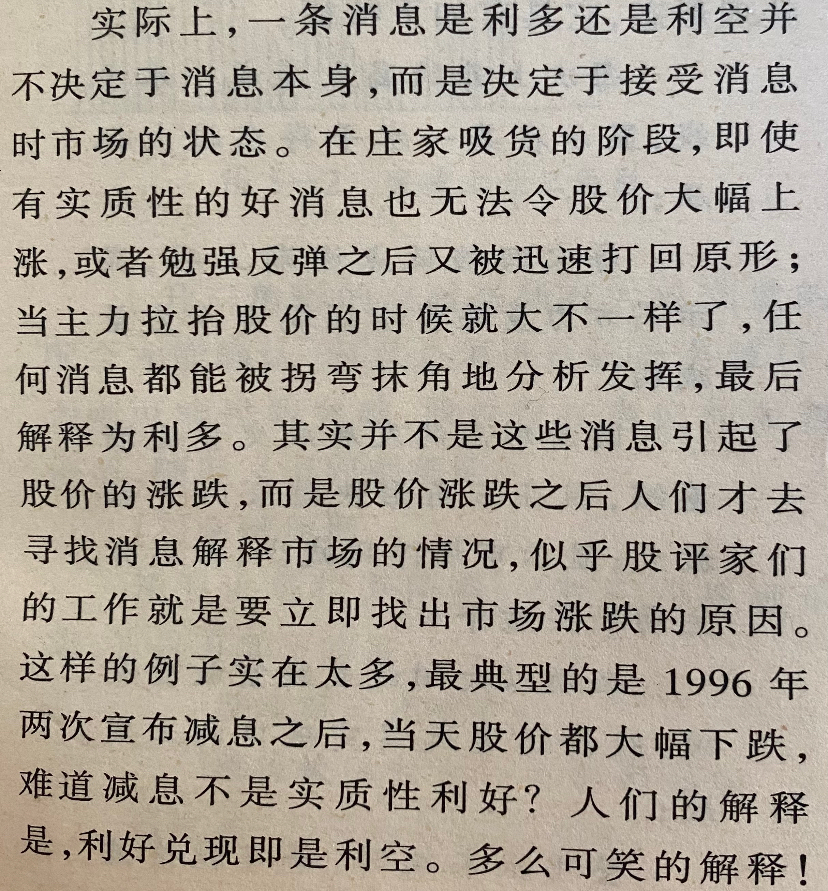 实际上,一条消息是利多还是利空并
不决定于消息本身,而是决定于接受消息
时市场的状态。在庄家吸货的阶段,即使
有实质性的好消息也无法令股价大幅上
涨,或者勉强反弹之后又被迅速打回原形;
当主力拉抬股价的时候就大不一样了,任
何消息都能被拐弯抹角地分析发挥,最后
解释为利多。其实并不是这些消息引起了
股价的涨跌,而是股价涨跌之后人们才去
寻找消息解释市场的情况,似乎股评家们
的工作就是要立即找出市场涨跌的原因。
这样的例子实在太多,最典型的是 1996 年
两次宣布减息之后,当天股价都大幅下跌,
难道减息不是实质性利好? 人们的解释
是,利好兑现即是利空。多么可笑的解释!